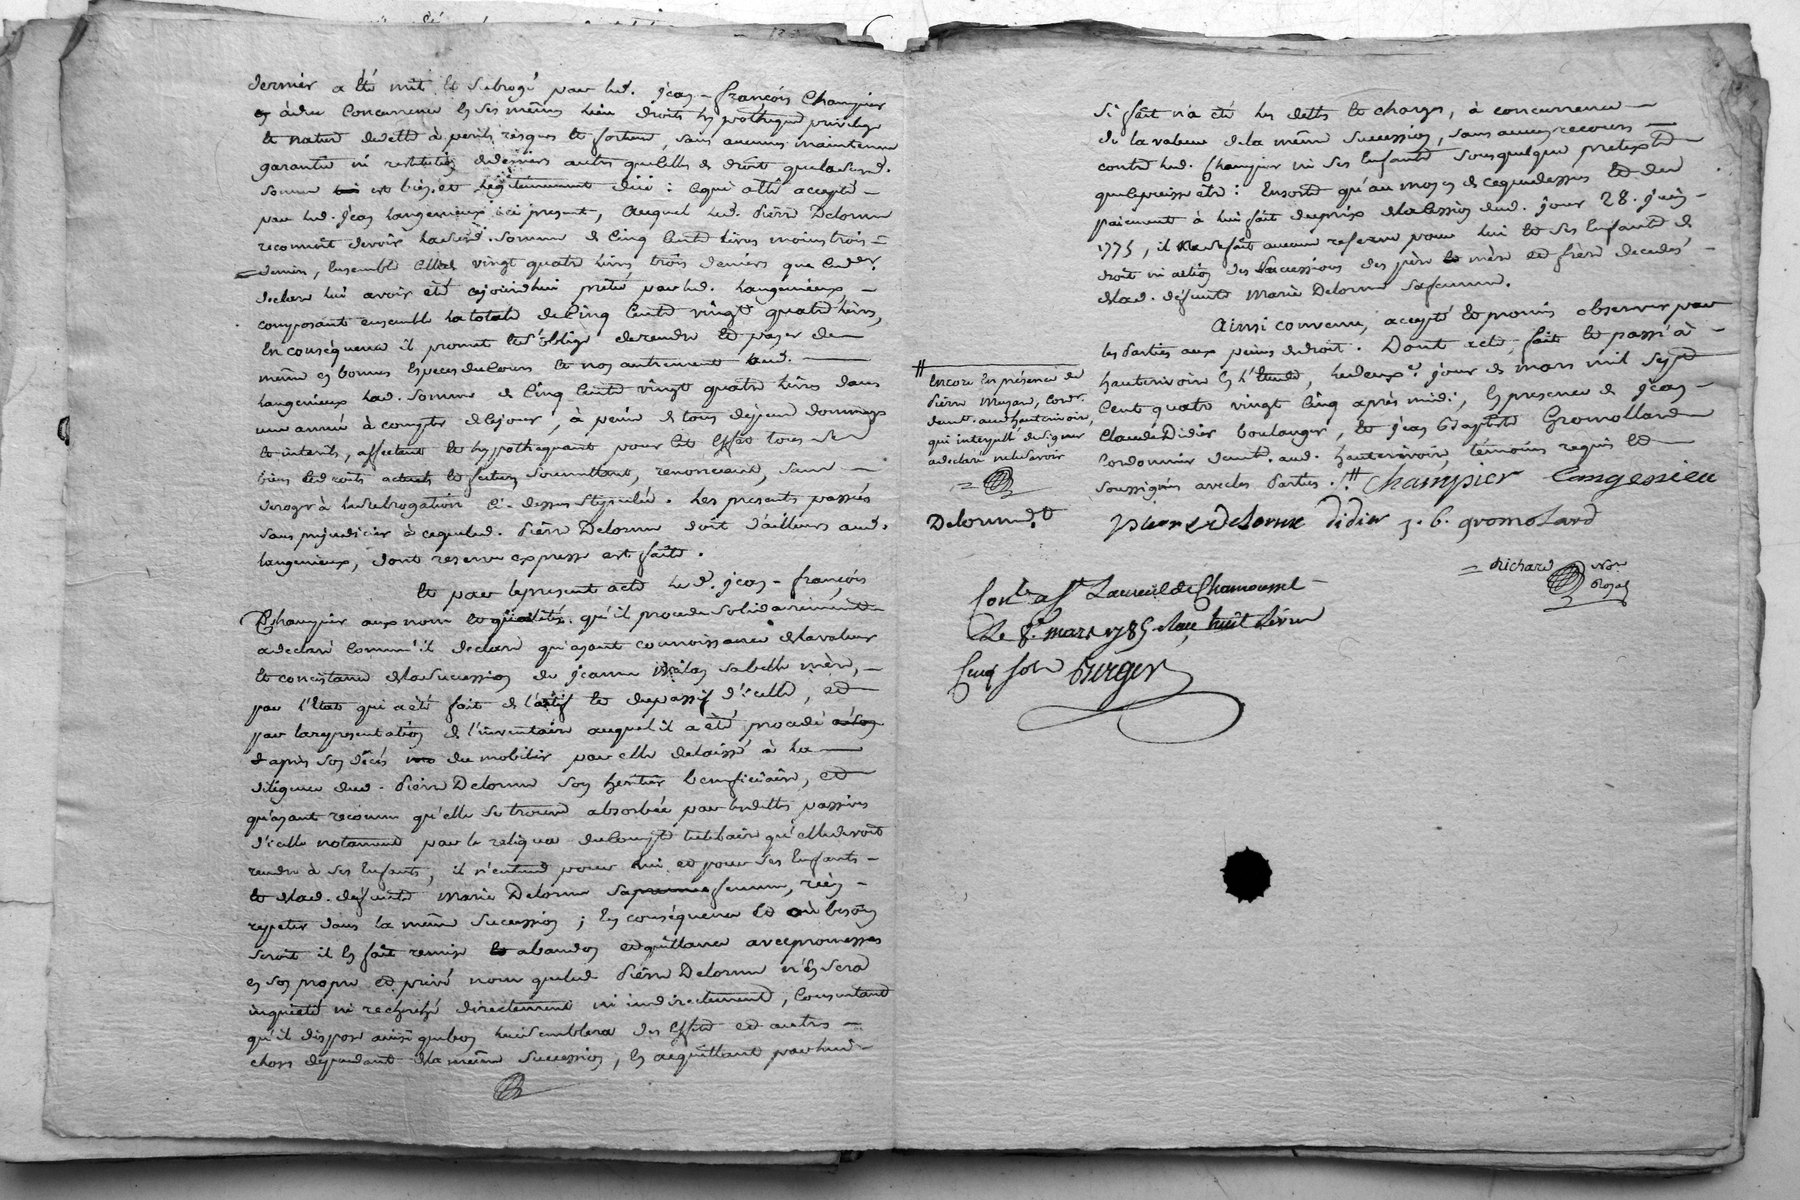 dernier a été mit et subrogé par led. jean-françois Champier
en à due Concurrence en ses mêmes lieu droits hypotheque privilege
et nature de dette à perils risques et fortune, sans aucune maintenue
garantie ni restitution de deniers autre que celle de droit que lad.
somme est bien et légitimement düe : ce qui a été accepté
par led. jean Langenieux ici present, auquel led. Pierre Delorme
reconnoit devoir lad. somme de Cinq Cents livres moins trois
denier, Ensemble Celle vingt quatre livres trois deniers que
declare lui avoir été cejourd'hui prêté par led. Langenieux
composant ensemble la totale de Cinq Cents vingt quatre livres,
En conséquence il promet et s'oblige de rendre et payer de
même en bonnes Especes de Cours et non autrement aud.
Langenieux lad. somme de Cinq Cents vingt quatre livres dans
une année à compter de ce jour, à peine de tous dépens dommages
et interets, affectant et hypothequant pour cet Effet tous ses
biens et droits actuels et futurs soumettant, renonceant, sans
deroger à la subrogation ci-dessus stipulée. Les presents passés
sans prejudicier à ce que led. Pierre Delorme doit d'ailleurs aud.
Langenieux, dont reserve expresse est faite.
Et par le present acte led. jean-françois
Champier aux nom et qualités qu'il procede solidairement
a declaré comm'il declare qu'ayant connoissance de la valeur
et consistance de la succession de jeanne sa belle mère,
par l'Etat qui a été fait de l'actif et du passif d'icelle, et
par la representation de l'inventaire auquel il a été procedé
d'après son décés du mobilier par elle delaissé à la
diligence dud. Pierre Delorme son heritier beneficiaire, et
qu'ayant reconnu qu'elle se trouve absorbée par les dettes passives
d'icelle notament par le reliqua du Compte tutelaire qu'elle devoit
rendre à ses Enfants, il n'entend pour lui et pour ses Enfants
et de lad. defunte Marie Delorme sa femme, rien
repeter dans la même succession ; En conséquence et où besoin
seroit il en fait remise et abandon et quittance avec promesses
en son propre et privé nom que led. Pierre Delorme n'en sera
inquieté ni recherché directement ni indirectement, Consentant
qu'il dispose ainsi que bon lui semblera des Effets et autres
choses dépendant de la même succession, en acquittant par lui
si fait n'a été les dettes et charges, à concurrence
de la valeur de la même succession, sans aucun recours
contre led. Champier ni ses Enfants sous quelque pretexte
que ce puisse etre : Ensorte qu'au moyen de ce que dessus et du
paiement à lui fait du prix de la Cession dud. jour 28. juin
1775, il ne se fait aucune reserve pour lui et ses Enfants de
droit ni action des successions des père et mère et frère decedés
de lad. défunte Marie Delorme sa femme.
Ainsi convenu, accepté et promis observer par
les Parties aux peines de droit. Dont acte, fait et passé à
hauterivoire En l'Etude, le deuxe. jour de mars mil sept
Cent quatre vingt Cinq après midi, En presence de jean
Claude Didier boulanger, et jean Baptiste Gromollard
Cordonnier demt. aud. hauterivoire, témoins requis et
soussignés avec les Parties. #
# Encore En présence de
Pierre Cordr.
demt. aud. hauterivoire,
qui interpellé de signer
a declaré ne le savoir
Champier Langenieu
Delorme
Pierre Delorme Didier j. b. gromolard
Richard Nore Royal
Conlé. a St. Laurent de Chamousset
Le 8. mars 1785 Reçu huit livres
Cinq sols Berger